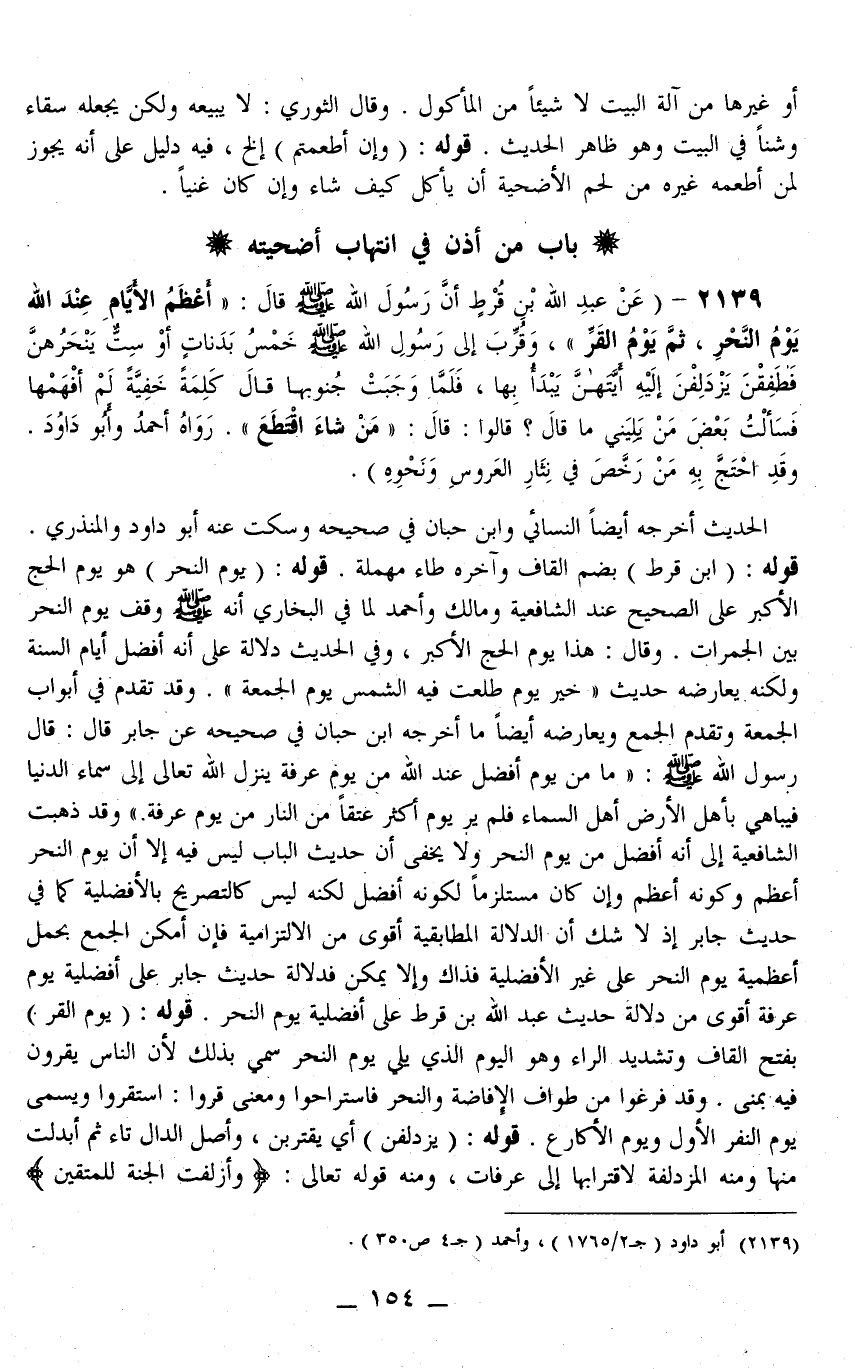 أو غيرها من آلة البيت لا شيئاً من المأكول . وقال الثوري : لا يبيعه ولكن يجعله سقاء
وشناً في البيت وهو ظاهر الحديث . قوله : ( وإن أطعمتم ) إلخ ، فيه دليل على أنه يجوز
لمن أطعمه غيره من لحم الأضحية أن يأكل كيف شاء وإن كان غنياً .
❋ باب من أذن في انتهاب أضحيته ❋
٢١٣٩ – ( عَنْ عبدِ الله بْنِ قُرْطٍ أنَّ رَسُولَ الله ﷺ قالَ : « أَعْظَمُ الأيَّامِ عِنْدَ الله
يَوْمُ النَّحْرِ ، ثمَّ يَوْمُ القَرِّ » ، وَقُرِّبَ إلى رَسُولِ الله ﷺ خَمْسُ بَدَناتٍ أوْ سِتٌّ يَنْحَرُهنَّ
فَطَفِقْنَ يَزْدَلِفْنَ إلَيْهِ أيَّتَهُنَّ يَبْدَأُ بِها ، فَلَمَّا وَجَبَتْ جُنوبها قالَ كَلِمَةً خَفِيَّةً لَمْ أفْهَمْها
فَسَألْتُ بَعْضَ مَنْ يَلِيَني ما قالَ ؟ قالوا : قالَ : « مَنْ شاءَ اقْتَطَعَ » . رَوَاهُ أحمدُ وأبُو دَاوُدَ .
وقَدِ احْتَجَّ بِهِ مَنْ رَخَّصَ في نِثَارِ العَروسِ وَنَحْوِهِ ) .
الحديث أخرجه أيضاً النسائي وابن حبان في صحيحه وسكت عنه أبو داود والمنذري .
قوله : ( ابن قرط ) بضم القاف وآخره طاء مهملة . قوله : ( يوم النحر ) هو يوم الحج
الأكبر على الصحيح عند الشافعية ومالك وأحمد لما في البخاري أنه ﷺ وقف يوم النحر
بين الجمرات . وقال : هذا يوم الحج الأكبر ، وفي الحديث دلالة على أنه أفضل أيام السنة
ولكنه يعارضه حديث « خير يوم طلعت فيه الشمس يوم الجمعة » . وقد تقدم في أبواب
الجمعة وتقدم الجمع ويعارضه أيضاً ما أخرجه ابن حبان في صحيحه عن جابر قال : قال
رسول الله ﷺ : « ما من يوم أفضل عند الله من يوم عرفة ينزل الله تعالى إلى سماء الدنيا
فيباهي بأهل الأرض أهل السماء فلم ير يوم أكثر عتقاً من النار من يوم عرفة.» وقد ذهبت
الشافعية إلى أنه أفضل من يوم النحر ولا يخفى أن حديث الباب ليس فيه إلا أن يوم النحر
أعظم وكونه أعظم وإن كان مستلزماً لكونه أفضل لكنه ليس كالتصريح بالأفضلية كما في
حديث جابر إذ لا شك أن الدلالة المطابقية أقوى من الالتزامية فإن أمكن الجمع بحمل
أعظمية يوم النحر على غير الأفضلية فذاك وإلا يمكن فدلالة حديث جابر على أفضلية يوم
عرفة أقوى من دلالة حديث عبد الله بن قرط على أفضلية يوم النحر . قوله : ( يوم القر )
بفتح القاف وتشديد الراء وهو اليوم الذي يلي يوم النحر سمي بذلك لأن الناس يقرون
فيه بمنى . وقد فرغوا من طواف الإفاضة والنحر فاستراحوا ومعنى قروا : استقروا ويسمى
يوم النفر الأول ويوم الأكارع . قوله : ( يزدلفن ) أي يقتربن ، وأصل الدال تاء ثم أبدلت
منها ومنه المزدلفة لاقترابها إلى عرفات ، ومنه قوله تعالى : ﴿ وأزلفت الجنة للمتقين ﴾
(٢١٣٩) أبو داود ( جـ٢/١٧٦٥ ) ، وأحمد ( جـ٤ ص٣٥٠ ) .
– ١٥٤ –